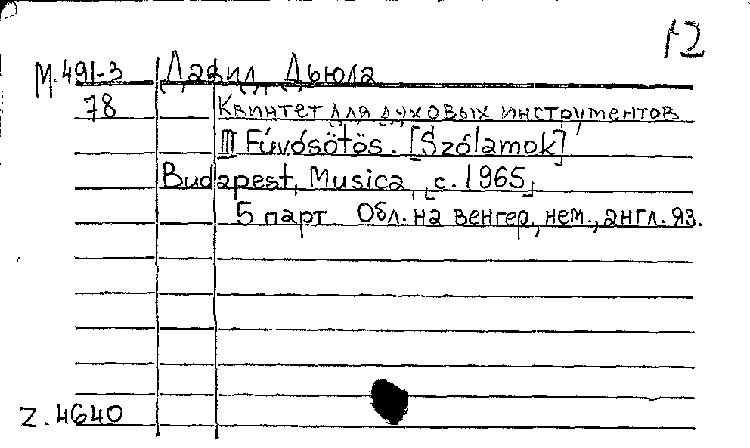 12
М.491-3 Давид, Дьюла
78 Квинтет для духовых инструментов
III Fúvósötös. [Szólamok]
Budapest, Musica, [c. 1965]
5 парт Обл. на венгер., нем., англ. яз.
Z.4640